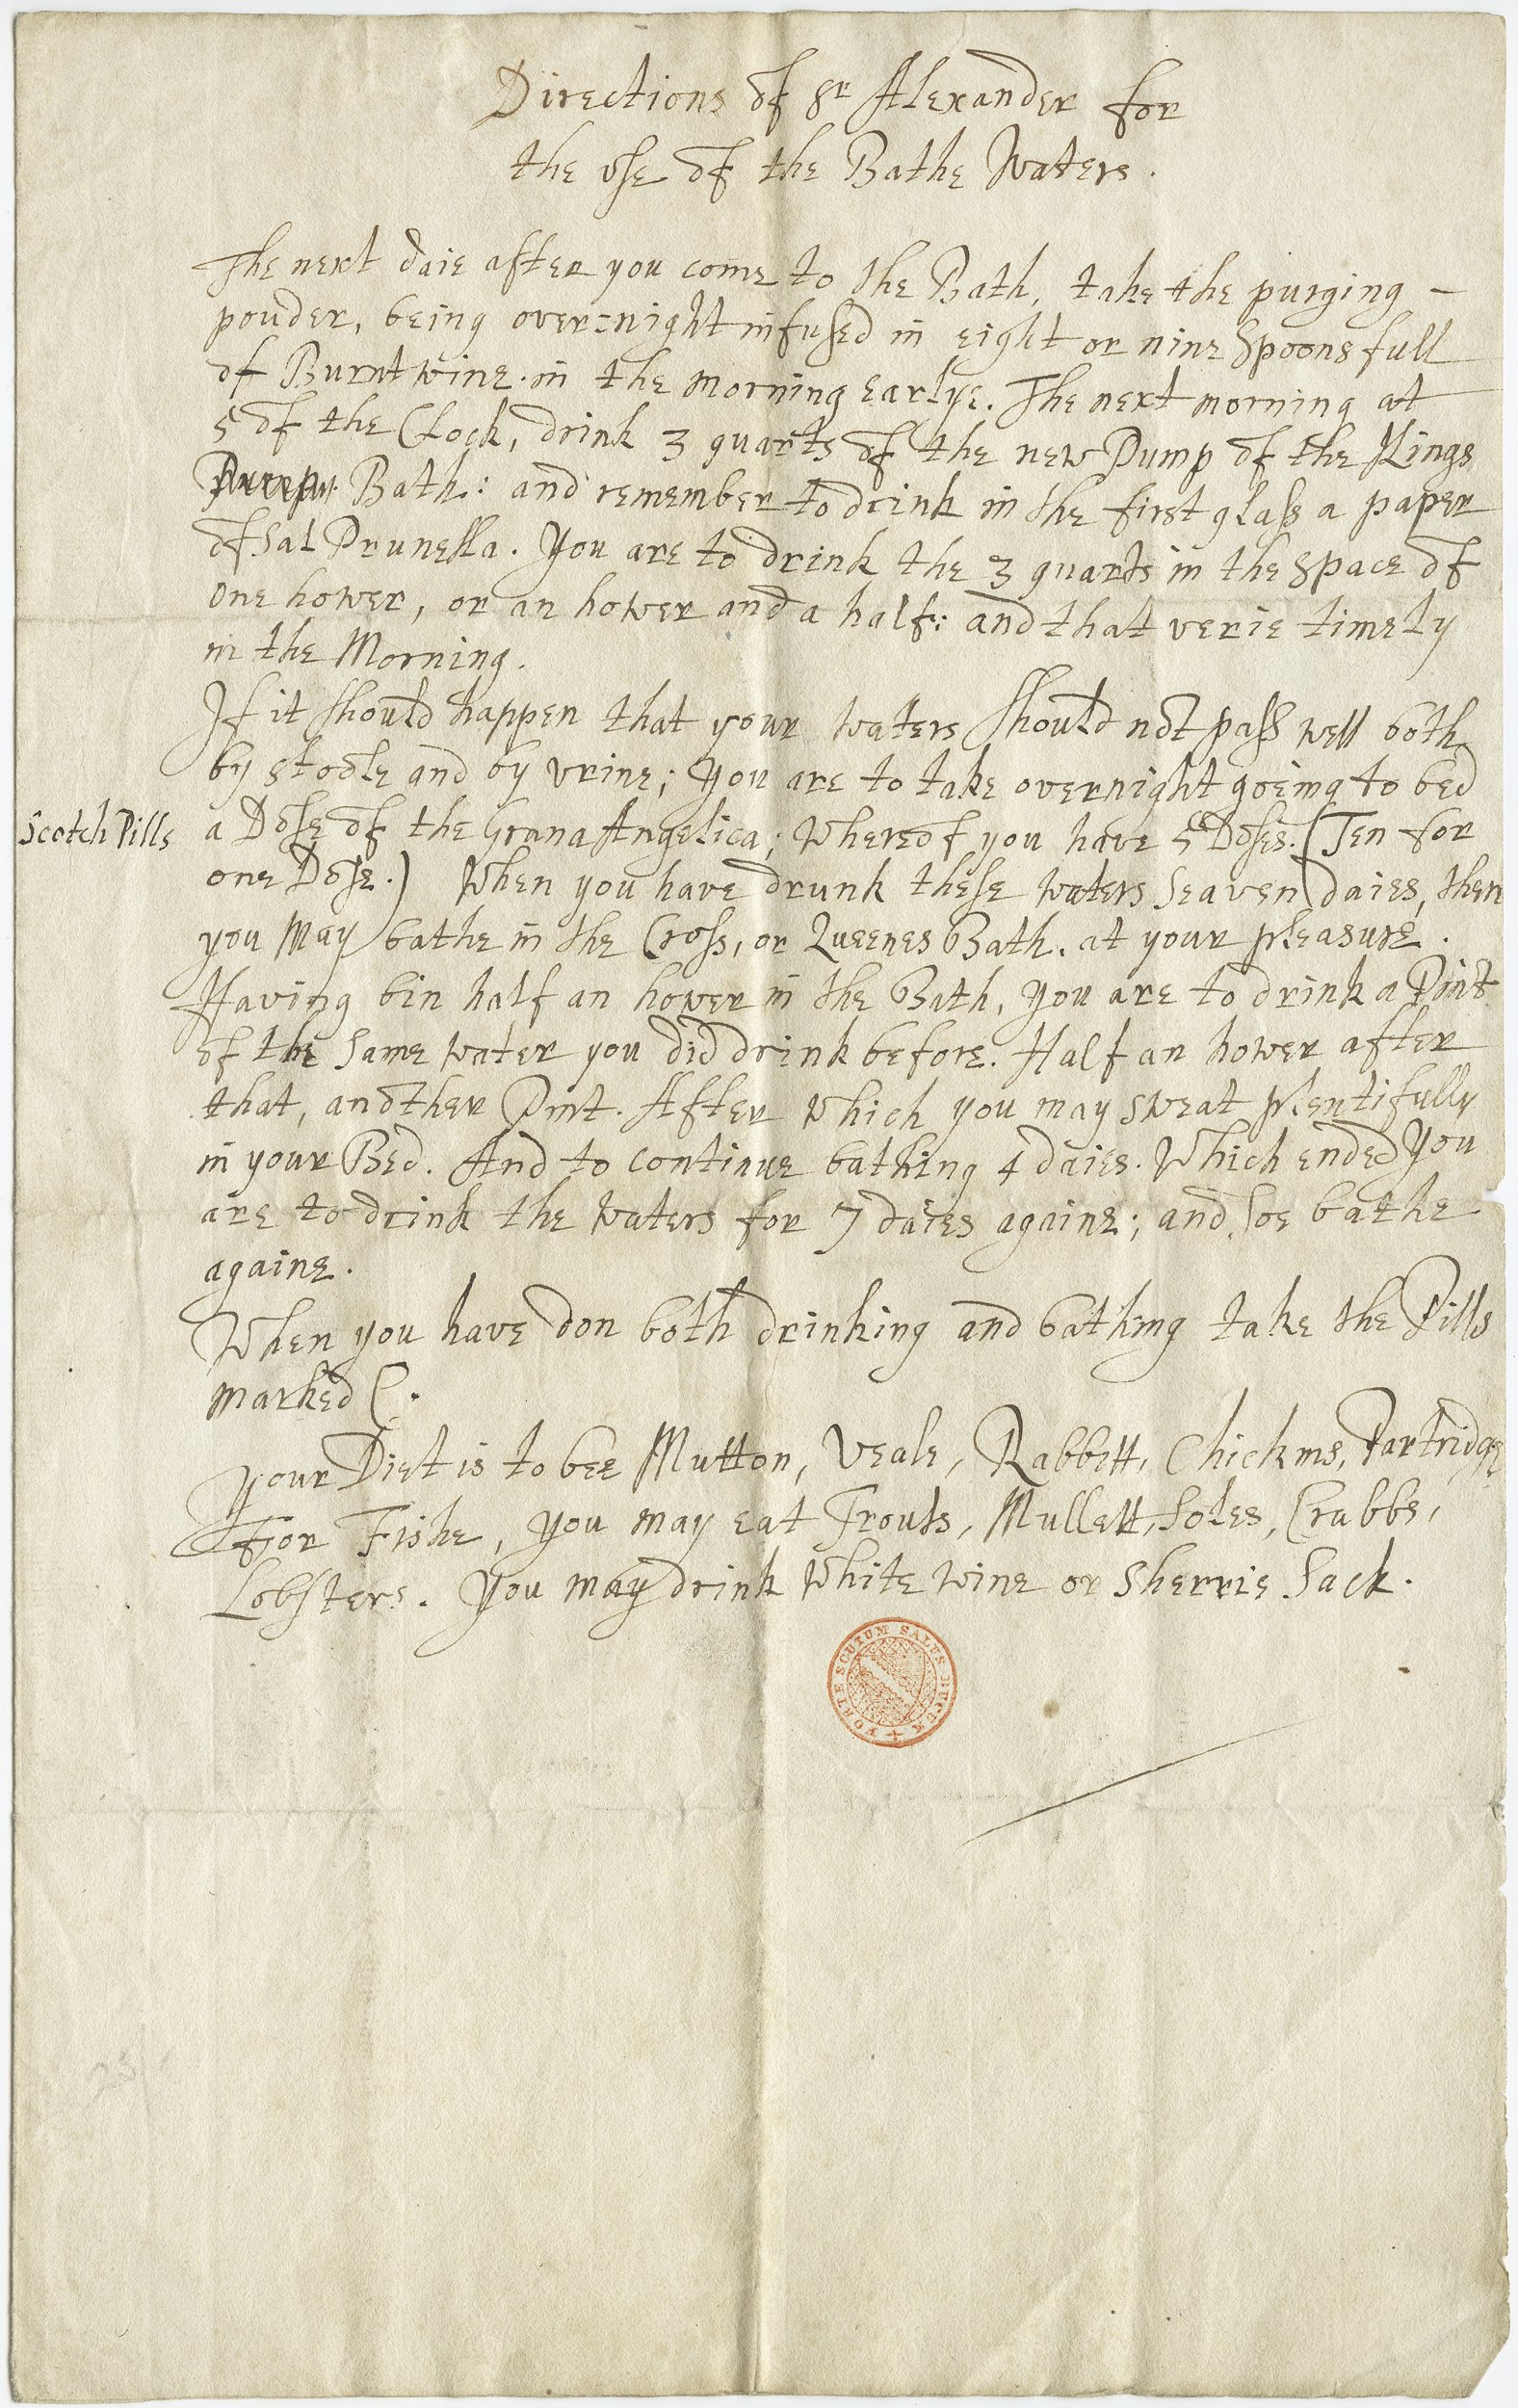 Directions of Sr Alexander for
the vse of the Bathe Waters.
The next daie after you come to the Bath, take the purging -
pouder, being over=night infused in eight or nine Spoonsfull
of Burnt wine. in the morning earlye. The next morning at
5 of the Clock, drink 3 quarts of the new Pump of the Kings
Bath: and remember to drink in the first glass a paper
of Sal Prunella. You are to drink the 3 quarts in the space of
one hower, or an hower and a half: and that verie timely
in the Morning.
If it should happen that your waters should not pass well both
by stoole and by vrine; you are to take overnight goeing to bed
Scotch Pills a Dose of the Grana Angelica; whereof you have 5 Doses. (Ten for
one Dose.) When you have drunk these waters Seaven daies, then
you May bathe in the Cross, or Queenes Bath. at your pleasure.
Having bin half an hower in the Bath, you are to drink a Pint
of the same water you did drink before. Half an hower after
that, another Pint. After which you may sweat plentifully
in your Bed. And to continue bathing 4 daies. Which ended you
are to drink the waters for 7 daies againe; and soe bathe
againe.
When you have don both drinking and bathing take the Pills
marked C.
Your Diet is to bee Mutton, Veale, Rabbett, Chickins, Partridge
For Fishe, you may eat Trouts, Mullett, Soles, Crabbs,
Lobsters. You may drink White wine or Sherrie Sack.
FORTE SCUTUM SALUS DUCUM